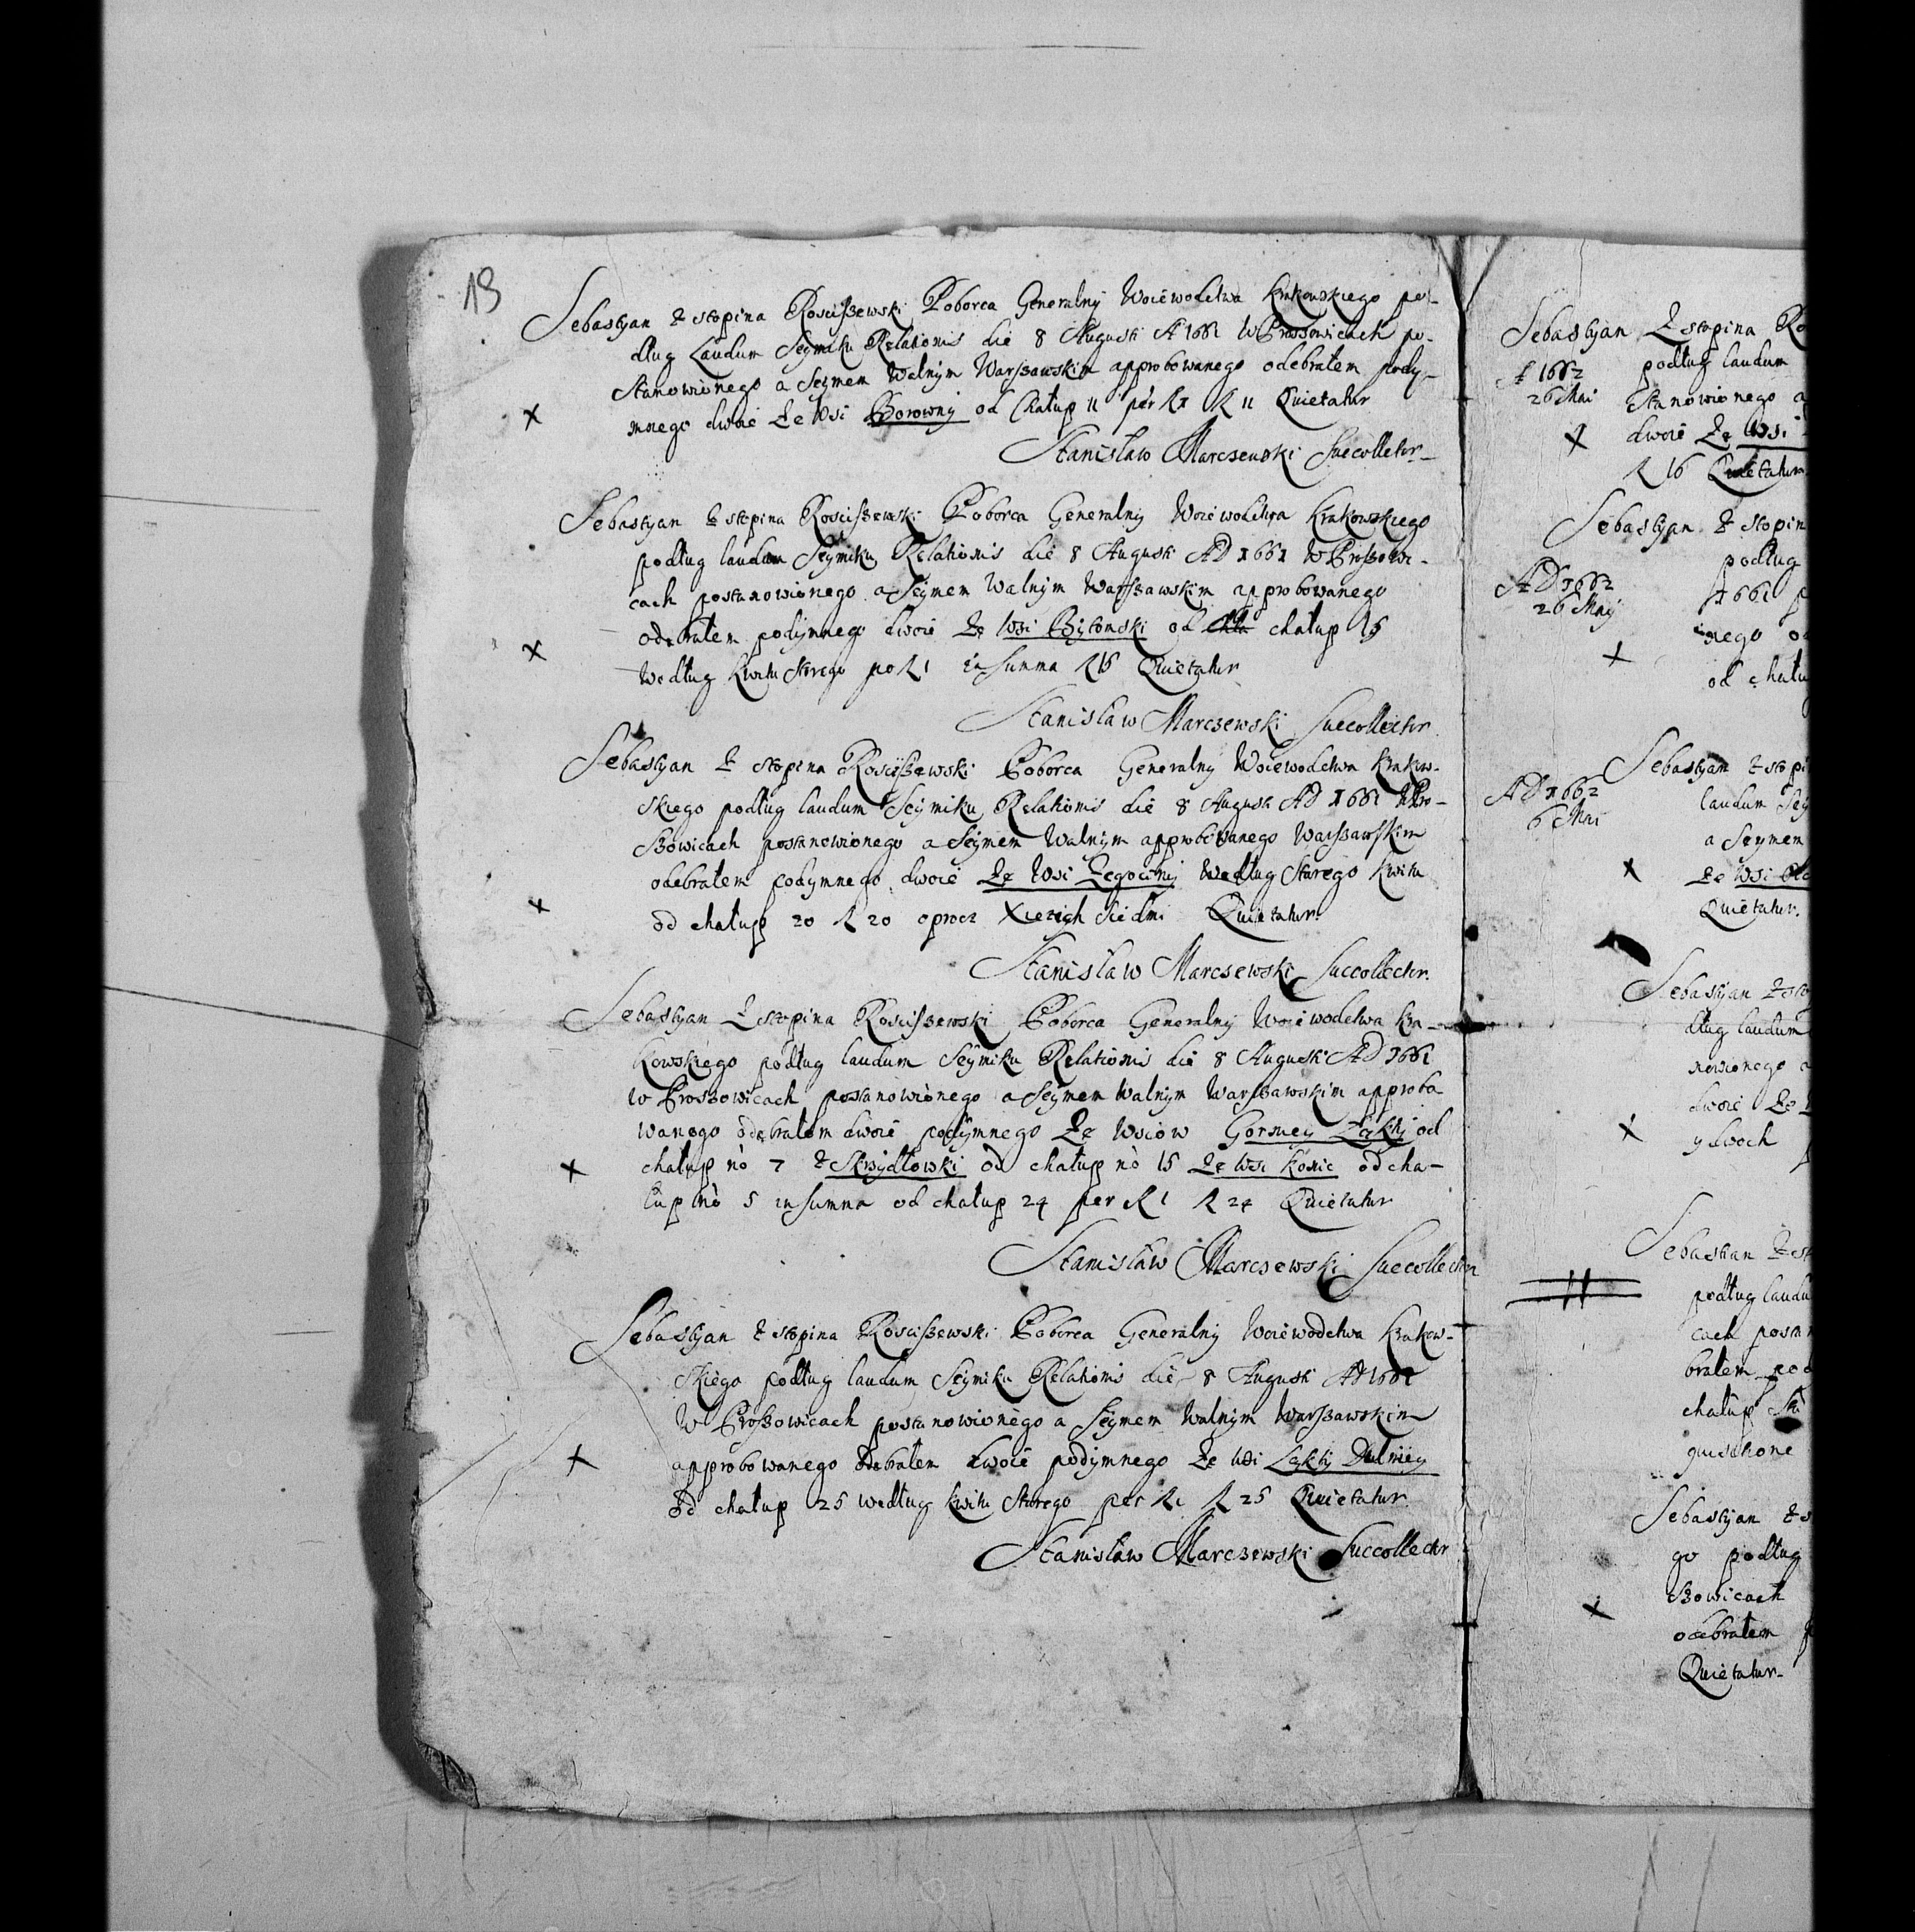 13
Sebastyan z stopina Rosciszewski Poborca Generalny Woiewodctwa Krakowskiego po-
dług Laudum Seymiku Relationis die 8 Augusti A 1661 w Proszowicach po-
stanowionego a Seymem Walnym Warszawskim approbowanego odebrałem pody-
mnego dwoie Ze Wsi Borowny od Chałup 11 per R 1 R 11 Quietatur
x
Stanisław Marczewski Succollector
Sebastyan z stopina Rosciszewski Poborca Generalny Woiewodctwa Krakowskiego
podług laudum Seymiku Relationis die 8 Augusti AD 1661 w Proszowi-
cach postanowionego a Seymem Walnym Warszawskim approbowanego
odebrałem podymnego dwoie Ze Wsi Bytomski od chałup 15
x
według kwitu starego po R 1 in summa R 15 Quietatur
Stanisław Marczewski Succollector
Sebastyan z stopina Rosciszewski Poborca Generalny Woiewodctwa Krakow-
skiego podług laudum Seymiku Relationis die 8 Augusti AD 1661 w Pro-
szowicach postanowionego a Seymem Walnym approbowanego Warszawskim
odebrałem podymnego dwoie Ze Wsi Zegociny Według Starego kwitu
x
od chałup 20 R 20 oprocz Xiezich siedmi Quietatur
Stanisław Marczewski Succollector
Sebastyan z stopina Rosciszewski Poborca Generalny Woiewodctwa Kra-
kowskiego podług laudum Seymiku Relationis die 8 Augusti AD 1661
w Proszowicach postanowionego a Seymem Walnym Warszawskim approbo
wanego odebrałem dwoie podymnego Ze Wsiow Gorney Łąkty od
x
chałup no 7 z Skrzydłowski od chałup no 15 Ze Wsi Konic od cha-
łup no 5 in summa od chałup 24 per R 1 R 24 Quietatur
Stanisław Marczewski Succollector
Sebastyan z stopina Rosciszewski Poborca Generalny Woiewodctwa Krakow-
skiego podług laudum Seymiku Relationis die 8 Augusti AD 1661
w Proszowicach postanowionego a Seymem Walnym Warszawskim
x
approbowanego odebrałem dwoie podymnego Ze Wsi Łąkty Dulniey
od chałup 25 według kwitu starego per R 1 R 25 Quietatur
Stanisław Marczewski Succollector
Sebastyan Z stopina
A 1662
26 Mai
podług laudum
stanowionego
x
dwoie Ze Wsi
R 16 Quietatur
Sebastyan z stopin
AD 1662
26 Maij
podług
1661
nego
x
od chału
Sebastyan z stopi
AD 1662
6 Mai
laudum Sey
a Seymem
x
Ze Wsi
Quietatur.
Sebastyan z sto
dług laudum
nowionego a
dwoie Ze
x
y dwoch
Sebastian z st
podług laudu
cach postan
brałem pod
chałup
Sebastyan z s
go podług
szowicach
x
odebrałem
Quietatur